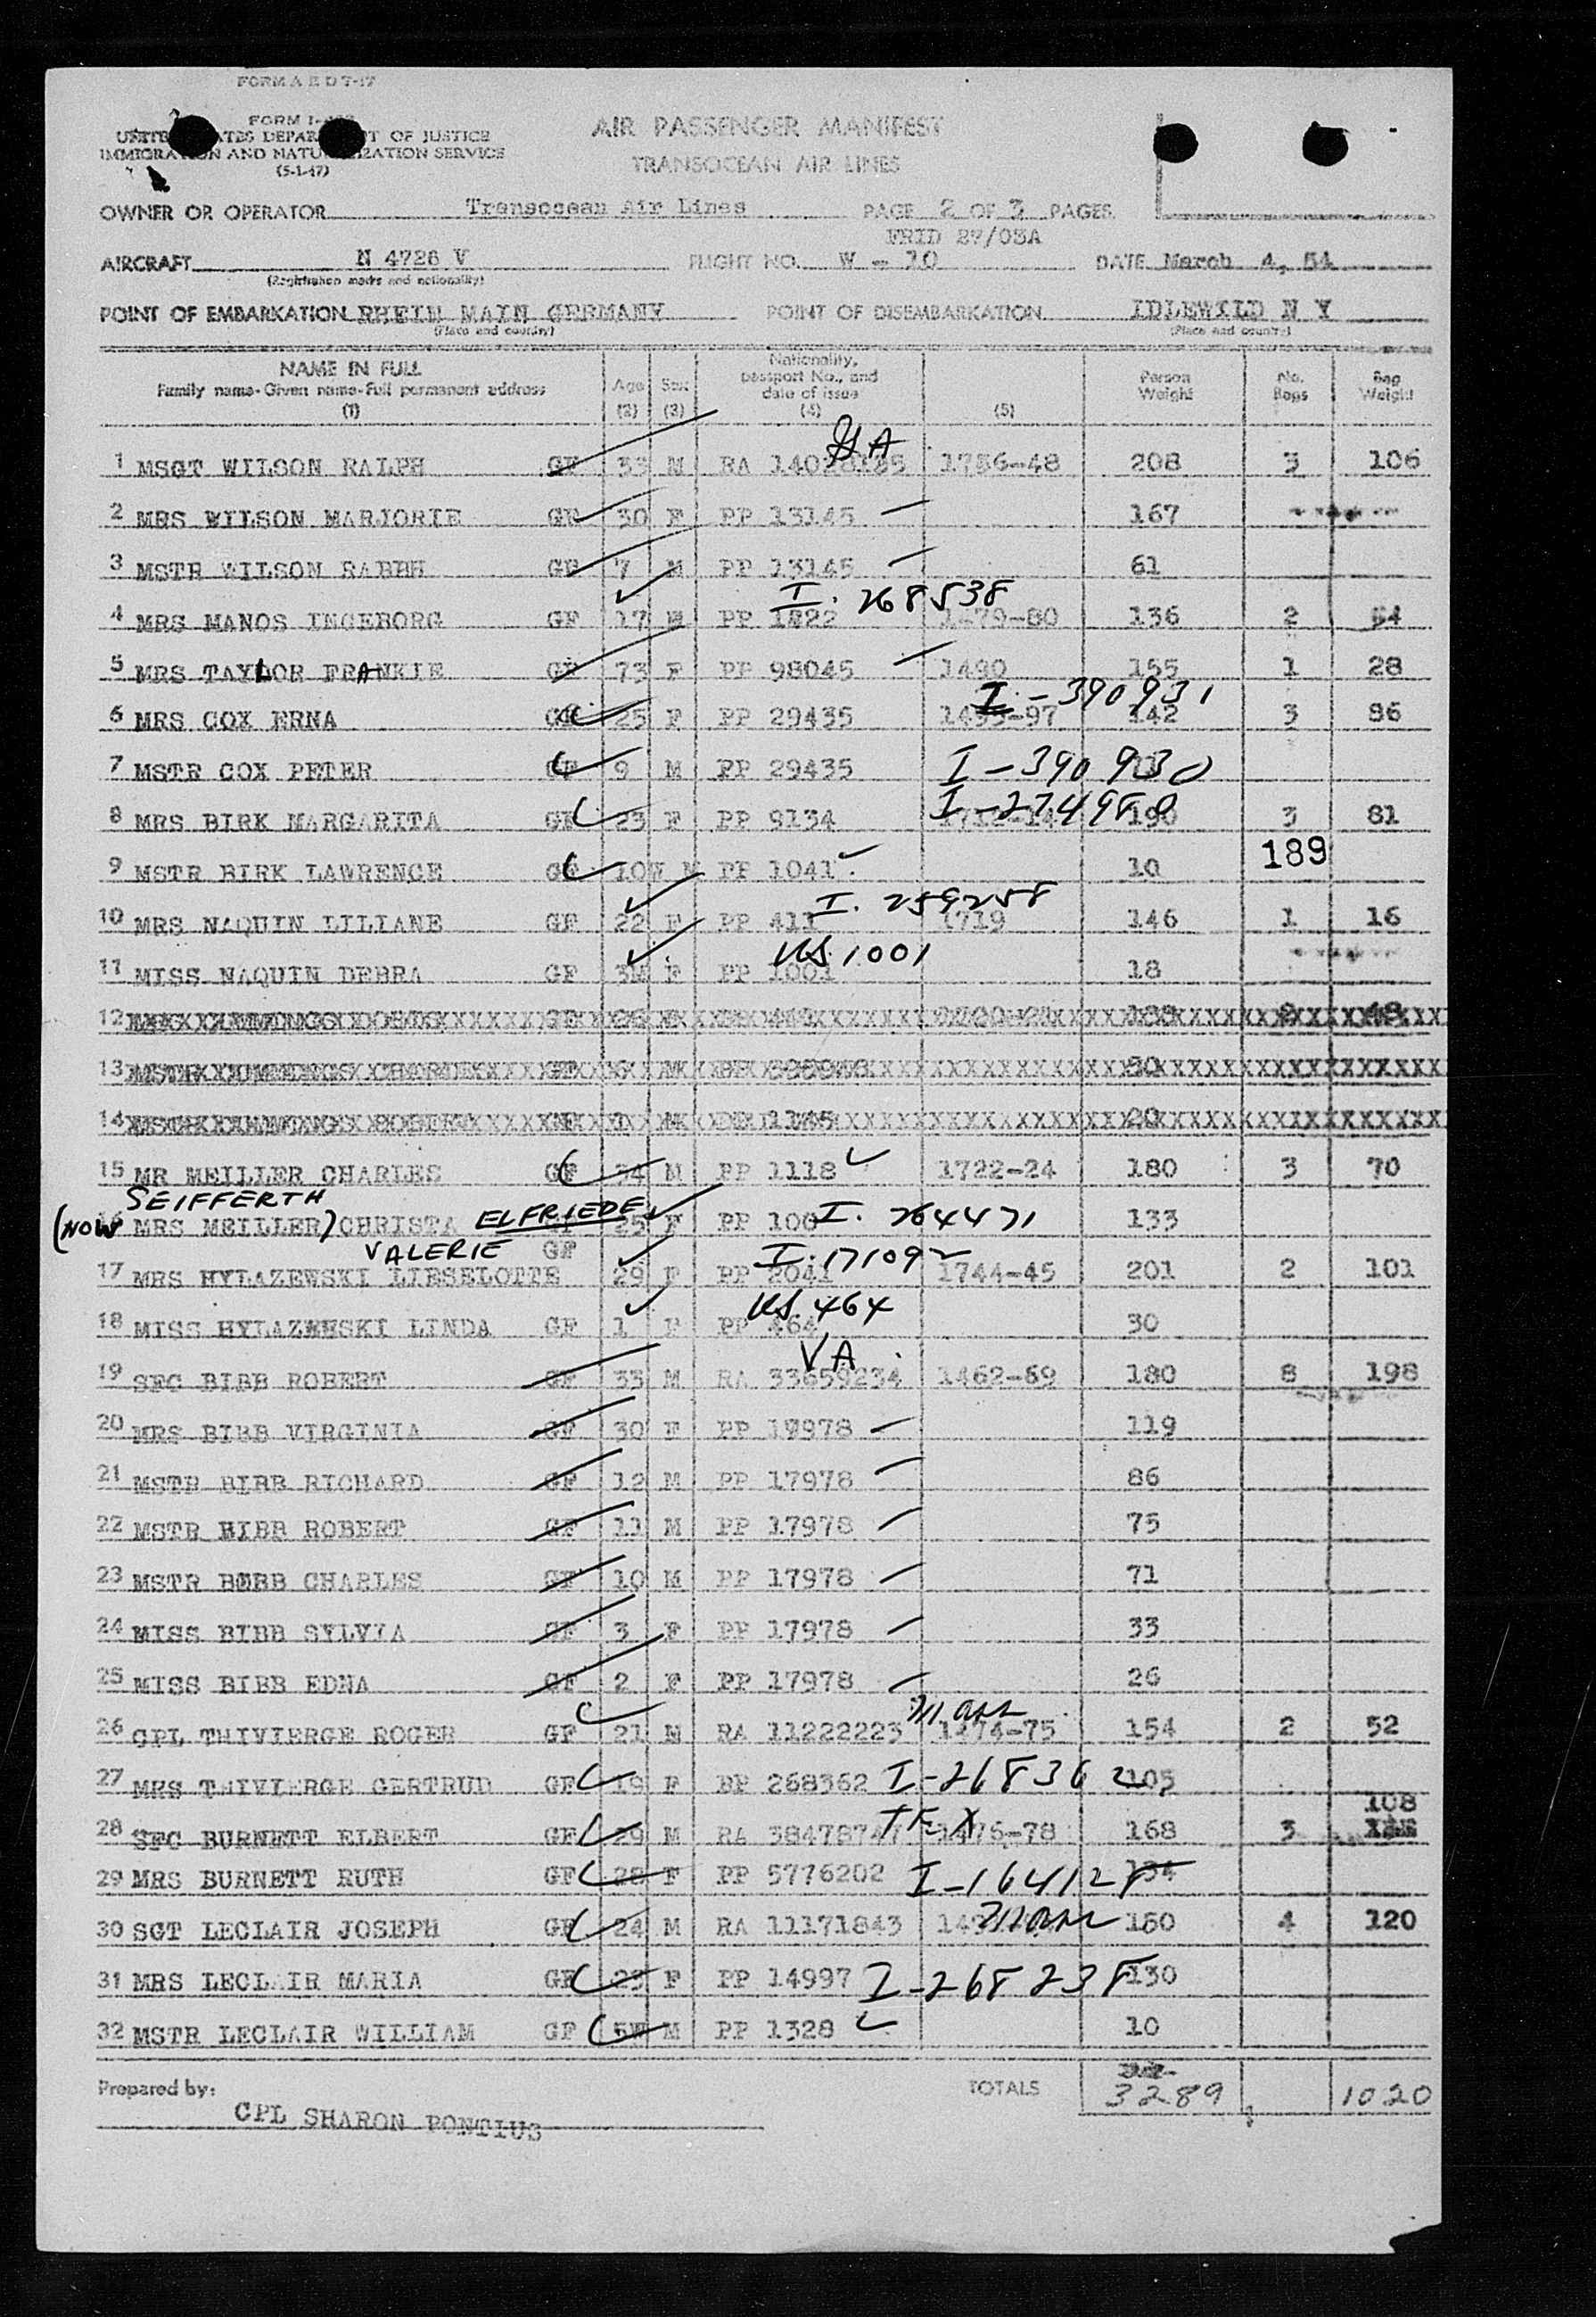 FORM A E D 7-17
FORM I-
UNITE ATES DEPAR T OF JUSTICE
IMMIGRATION AND NATU IZATION SERVICE
(5-1-47)
AIR PASSENGER MANIFEST
TRANSOCEAN AIR LINES
OWNER OR OPERATOR Transocean Air Lines PAGE 2 OF 3 PAGES
FRID 27/03A
AIRCRAFT N 4726 V FLIGHT NO. W - 10 DATE March 4, 54
(Registration marks and nationality)
POINT OF EMBARKATION RHEIN MAIN GERMANY POINT OF DISEMBARKATION IDLEWILD N Y
(Place and country) (Place and country)
NAME IN FULL
Family name-Given name-Full permanent address
(1)
Age
(2)
Sex
(3)
Nationality,
passport No., and
date of issue
(4)
(5)
Person
Weight
No.
Bags
Bag
Weight
GA
1 MSGT WILSON RALPH GF 33 M RA 14028185 1756-48 208 3 106
2 MRS WILSON MARJORIE GF 30 F PP 13145 167
3 MSTR WILSON GF 7 M PP 13145 61
I. 268538
4 MRS MANOS INGEBORG GF 17 PP 1822 1479-80 136 2 54
5 MRS TAYLOR FRANKIE GF 73 F PP 98045 1490 155 1 28
I-390931
6 MRS COX ERNA GF 25 F PP 29435 1495-97 142 3 86
7 MSTR COX PETER GF 9 M PP 29435 I-390930
I-274980
8 MRS BIRK MARGARITA GF 23 F PP 9134 190 3 81
9 MSTR BIRK LAWRENCE GF 10W M PP 1041 10 189
I. 259258
10 MRS NAQUIN LILIANE GF 22 F PP 411 1719 146 1 16
US 1001
11 MISS NAQUIN DEBRA GF 3M F PP 1001 18
12
13
14
15 MR MEILLER CHARLES GF 34 M PP 1118 1722-24 180 3 70
SEIFFERTH
(NOW MRS MEILLER) CHRISTA ELFRIEDE 25 F PP 100 I. 264471 133
VALERIE GF I.171092
17 MRS HYLAZEWSKI LIESELOTTE 29 F PP 2041 1744-45 201 2 101
US 464
18 MISS HYLAZEWSKI LINDA GF 1 F PP 464 30
VA
19 SFC BIBB ROBERT GF 33 M RA 33659234 1462-69 180 8 198
20 MRS BIBB VIRGINIA GF 30 F PP 17978 119
21 MSTR BIBB RICHARD GF 12 M PP 17978 86
22 MSTR BIBB ROBERT GF 11 M PP 17978 75
23 MSTR BIBB CHARLES GF 10 M PP 17978 71
24 MISS BIBB SYLVIA GF 3 F PP 17978 33
25 MISS BIBB EDNA GF 2 F PP 17978 26
Mass
26 CPL THIVIERGE ROGER GF 21 M RA 11222223 1474-75 154 2 52
27 MRS THIVIERGE GERTRUD GF 19 F PP 268362 I-268362 105
TEX 108
28 SFC BURNETT ELBERT GF 29 M RA 38478747 1476-78 168 3
29 MRS BURNETT RUTH GF 28 F PP 5776202 I-164128 134
30 SGT LECLAIR JOSEPH GF 24 M RA 11171843 Mass 150 4 120
31 MRS LECLAIR MARIA GF 23 F PP 14997 I-268238 130
32 MSTR LECLAIR WILLIAM GF 5W M PP 1328 10
Prepared by: TOTALS 3289 1020
CPL SHARON PONTIUS